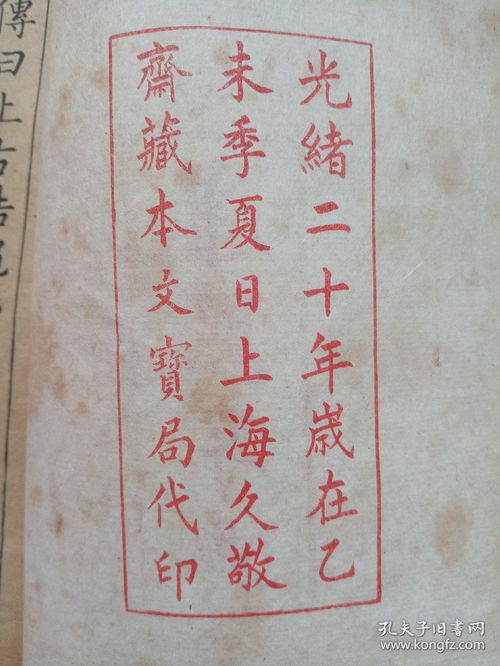 光緒二十年歲在乙
未季夏日上海久敬
齋藏本文寶局代印
傳曰上古結
孔夫子旧书网
www.kongfz.com